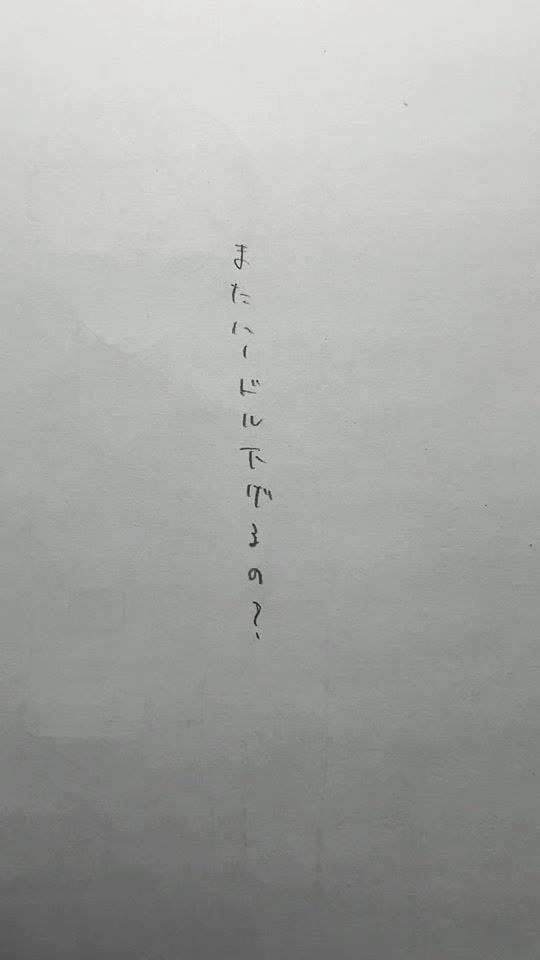 まだハードル下げるの?